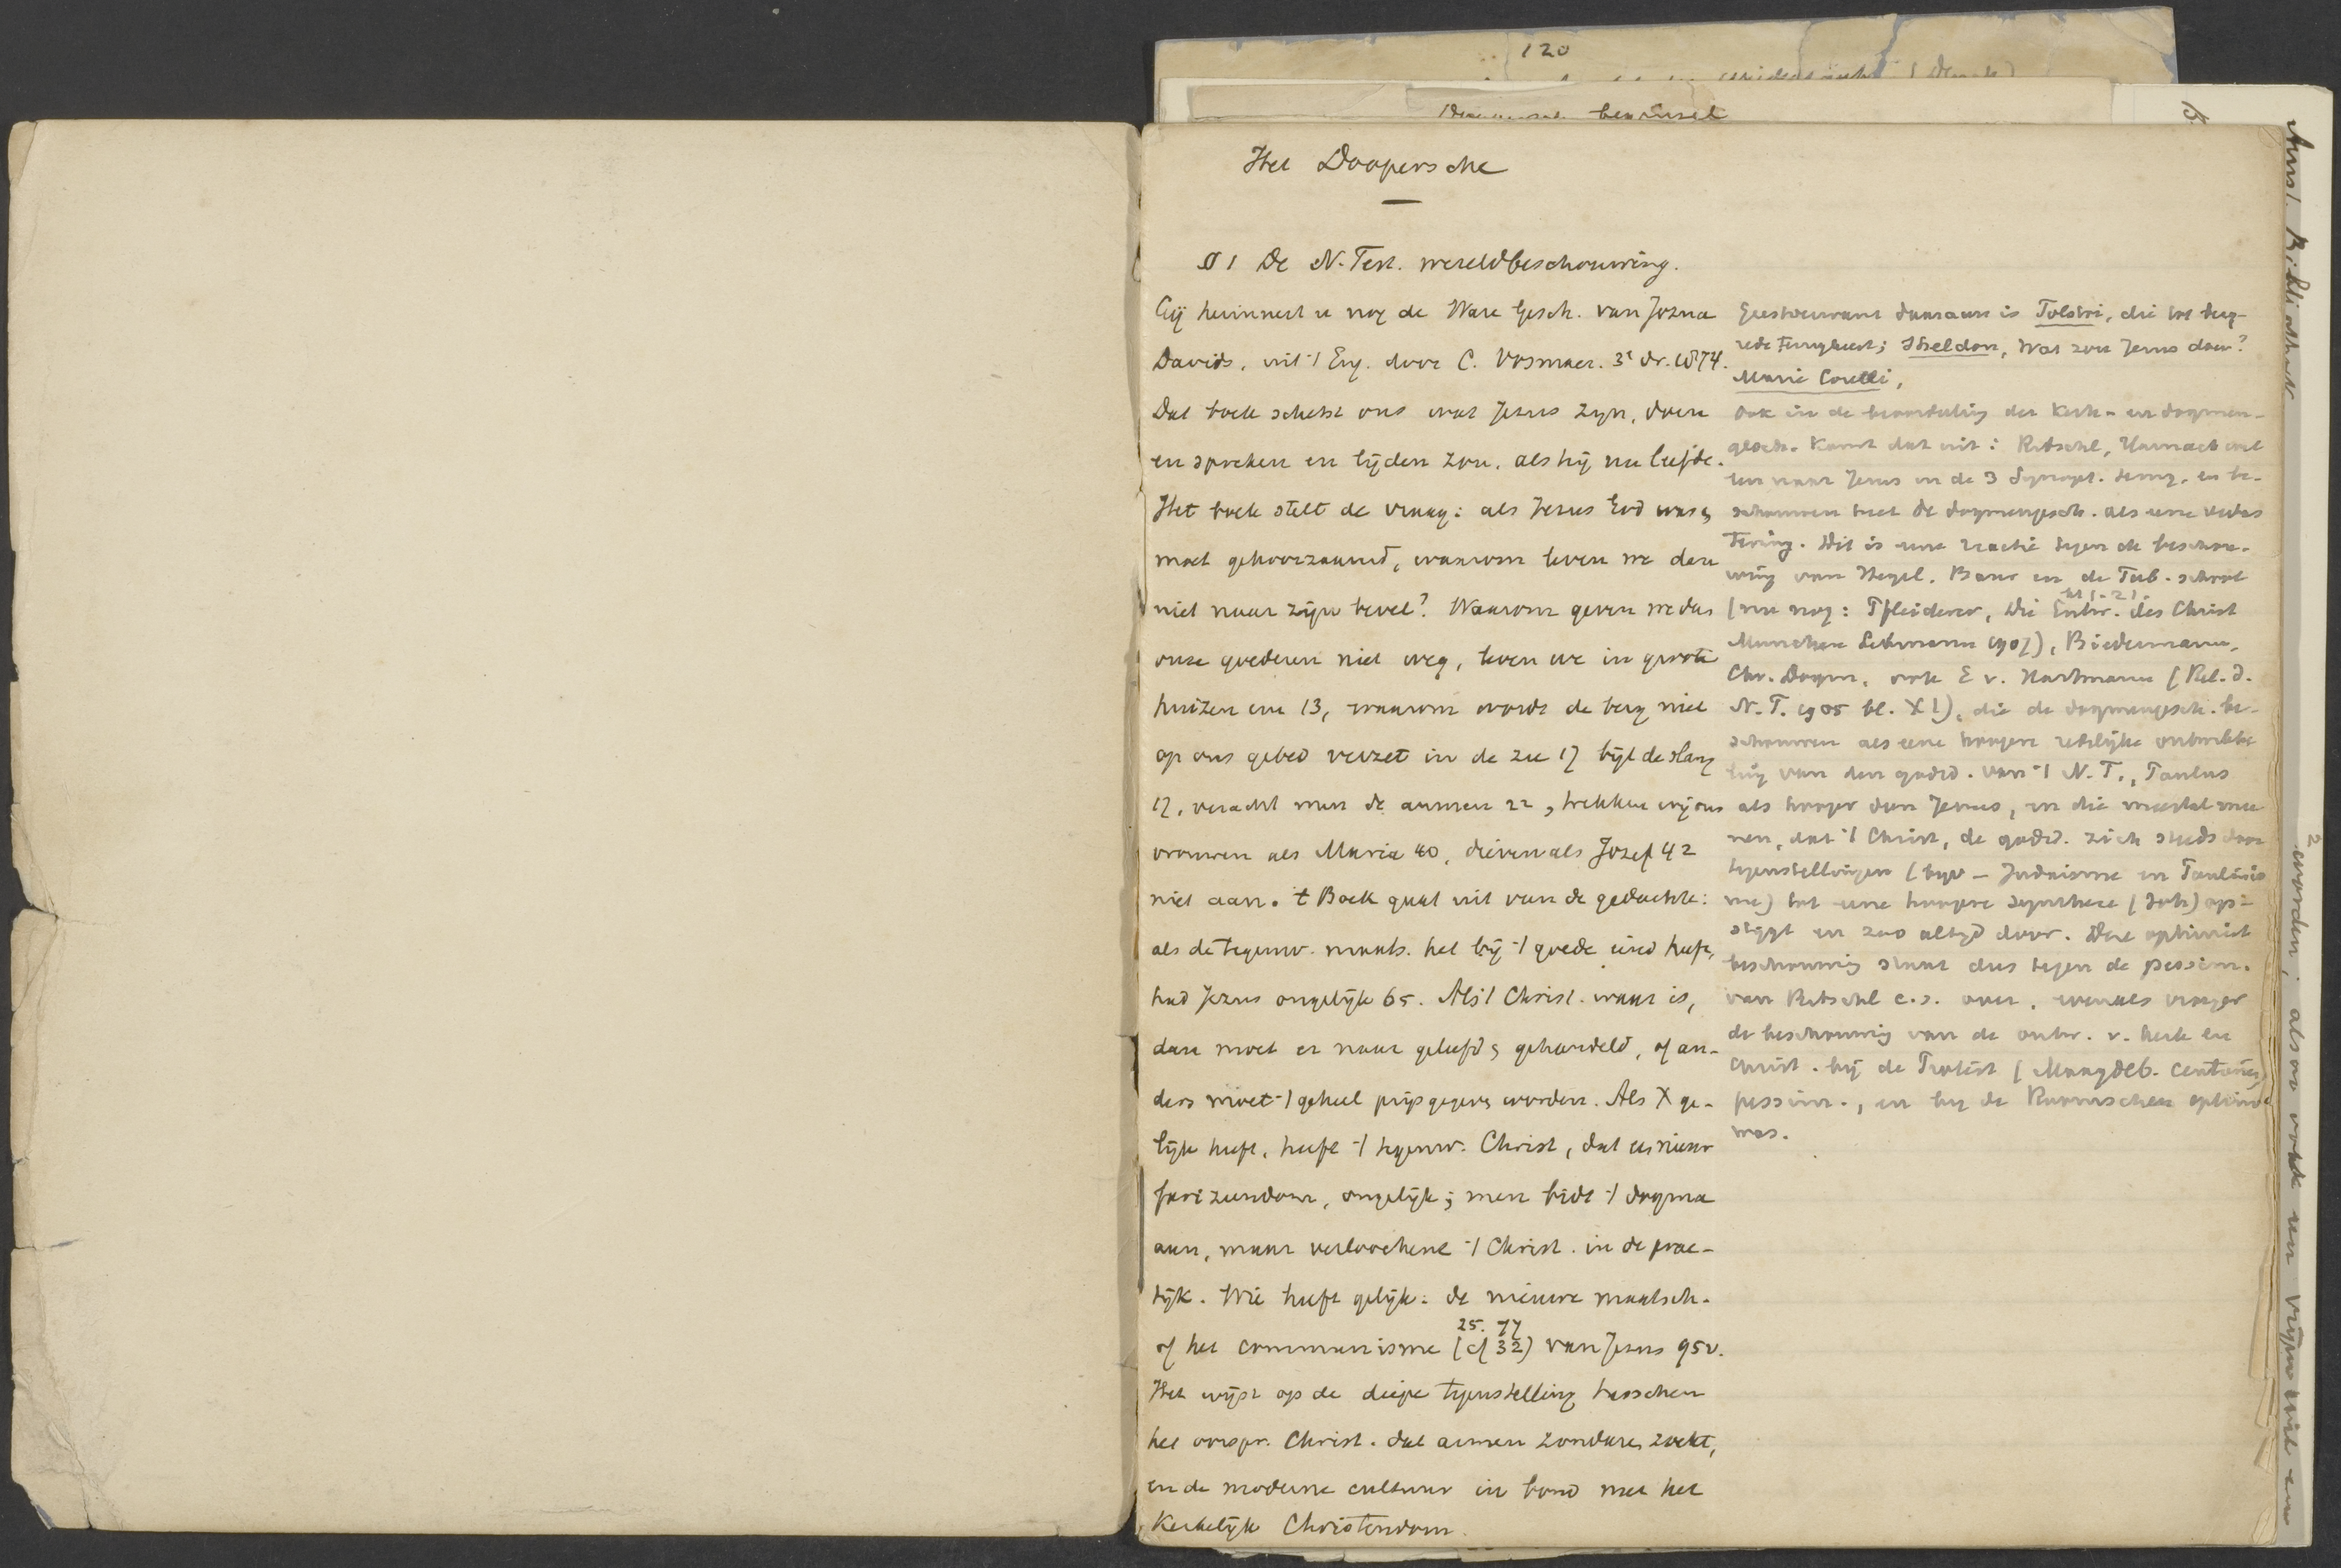 120
bewimsel
Het Doopersche
§ 1 De N. Test. wereldbeschouwing.
Gij herinnert u nog de Ware Gesch. van Jozua
Davids, uit 't Eng. door C. Vosmaer. 3e dr. 1874.
Dat boek schetst ons wat Jezus zijn, doen
en spreken en lijden zou, als hij nu leefde.
Het boek stelt de vraag: als Jezus God was,
moet gehoorzaamd, waarom leven we dan
niet naar zijn bevel? Waarom geven we dus
onze goederen niet weg, leven we in groote
huizen enz 13, waarom wordt de berg niet
op ons gebed verzet in de zee 17 bijt de slang
17, veracht men de armen 22, trekken wij ons
vrouwen als Maria 40, dieven als Jozef 42
niet aan. 't Boek gaat uit van de gedachte:
als de tegenw. maats. het bij 't goede eind heeft,
had Jezus ongelijk 65. Als 't Christ. waar is,
dan moet er naar geleefd, gehandeld, of an-
ders moet 't geheel prijs gegeven worden. Als X ge-
lijk heeft, heeft 't tegenw. Christ, dat is nieuw
farizeendom, ongelijk; men bidt 't dogma
aan, maar verloochent 't Christ. in de prac-
tijk. Wie heeft gelijk: de nieuwe maatsch.
25. 77
of het communisme (cf 32) van Jezus 95v.
Het wijst op de diepe tegenstelling tusschen
het oorspr. Christ. dat armen zondaren zoekt,
en de moderne cultuur in bond met het
Kerkelijk Christendom.
Geestverwant daaraan is Tolstoi, die tot
Sheldon, Wat zou Jezus doen?
Marie Corelli,
ook in de beoordeeling der Kerk- en dogmen-
gesch. komt dat uit: Ritschl, Harnack
naar Jezus in de 3 Synopt. terug, en be-
schouwen heel de dogmengesch. als eene
Dit is eene reactie tegen de beschou-
wing van Hegel, Baur en de Tub. school
(nu nog: Pfleiderer, Die Entw. des Christ
München Lehmann 1907), Biedermann,
Chr. Dogm., ook E v. Hartmann (Rel. d.
N. T. 1905 bl. XI), die de dogmengesch. be-
schouwen als eene hoogere ontwikke
ling van den godsd. van 't N. T., Paulus
als hooger dan Jezus, en die meestal mee
nen, dat 't Christ, de godsd. zich steeds door
tegenstellingen (bijv - Judaisme en Paulinis
me) tot eene hoogere synthese (Joh) op-
stijgt en zoo altijd door. Deze optimist
beschouwing staat dus tegen de pessim.
van Ritschl c.s. over, evenals vroeger
de beschouwing van de ontw. v. kerk en
Christ. bij de Protest (Maagdeb. Centuries
pessim., en bij de Roomschen optimist
was.
Amst. Bibliotheek
2
worden; alsoo wordt een vrijen wil